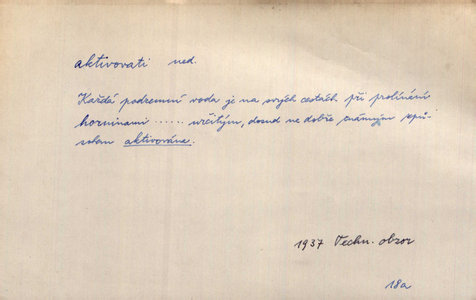 aktivovati ned.
Každá podzemní voda je na svých cestách při prolínání
horninami ...... určitým, dosud ne dobře známým způ-
sobem aktivována.
1937 Techn. obzor
18a